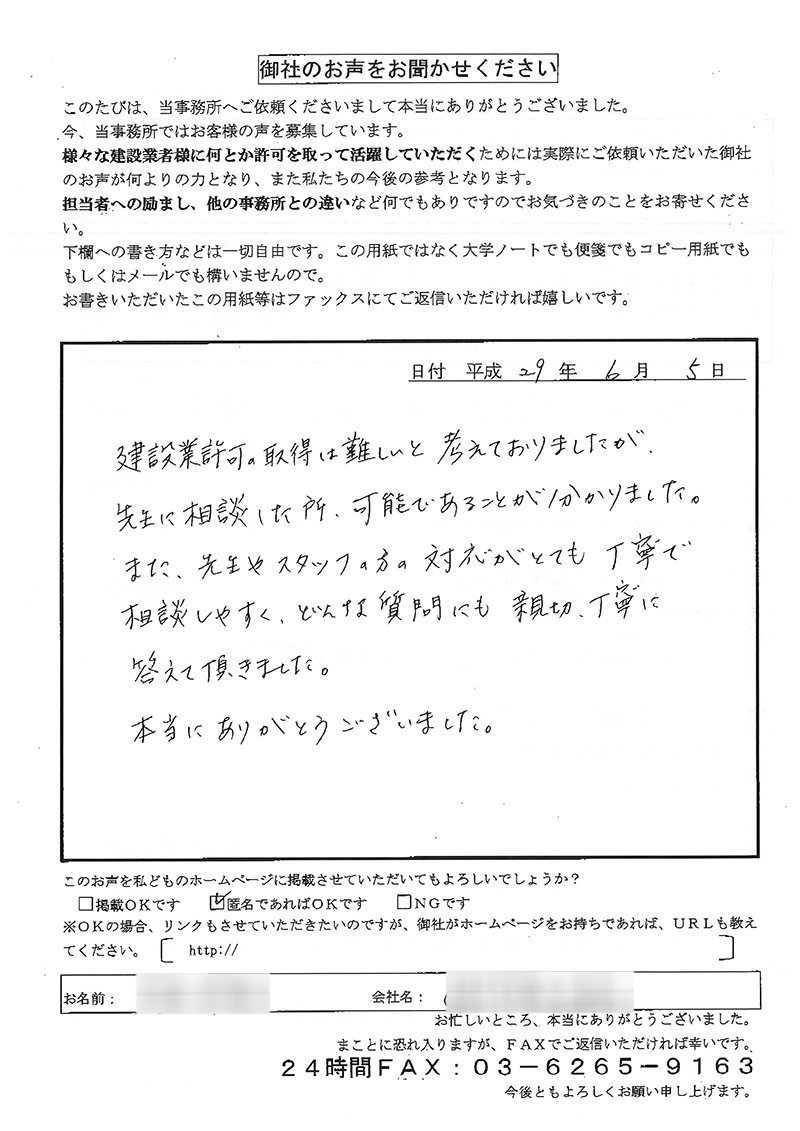 御社のお声をお聞かせください
このたびは、当事務所へご依頼くださいまして本当にありがとうございました。
今、当事務所ではお客様の声を募集しています。
様々な建設業者様に何とか許可を取って活躍していただくためには実際にご依頼いただいた御社
のお声が何よりの力となり、また私たちの今後の参考となります。
担当者への励まし、他の事務所との違いなど何でもありですのでお気づきのことをお寄せくださ
い。
下欄への書き方などは一切自由です。この用紙ではなく大学ノートでも便箋でもコピー用紙でも
もしくはメールでも構いませんので。
お書きいただいたこの用紙等はファックスにてご返信いただければ嬉しいです。
日付 平成 29 年 6 月 5 日
建設業許可の取得は難しいと考えておりましたが、
先生に相談した所、可能であることが分かりました。
また、先生やスタッフの方の対応がとても丁寧で
相談しやすく、どんな質問にも親切、丁寧に
答えて頂きました。
本当にありがとうございました。
このお声を私どものホームページに掲載させていただいてもよろしいでしょうか？
□掲載OKです ☑匿名であればOKです □NGです
※OKの場合、リンクもさせていただきたいのですが、御社がホームページをお持ちであれば、URLも教え
てください。〔 http:// 〕
お名前： 会社名：
お忙しいところ、本当にありがとうございました。
まことに恐れ入りますが、FAXでご返信いただければ幸いです。
24時間FAX：03-6265-9163
今後ともよろしくお願い申し上げます。